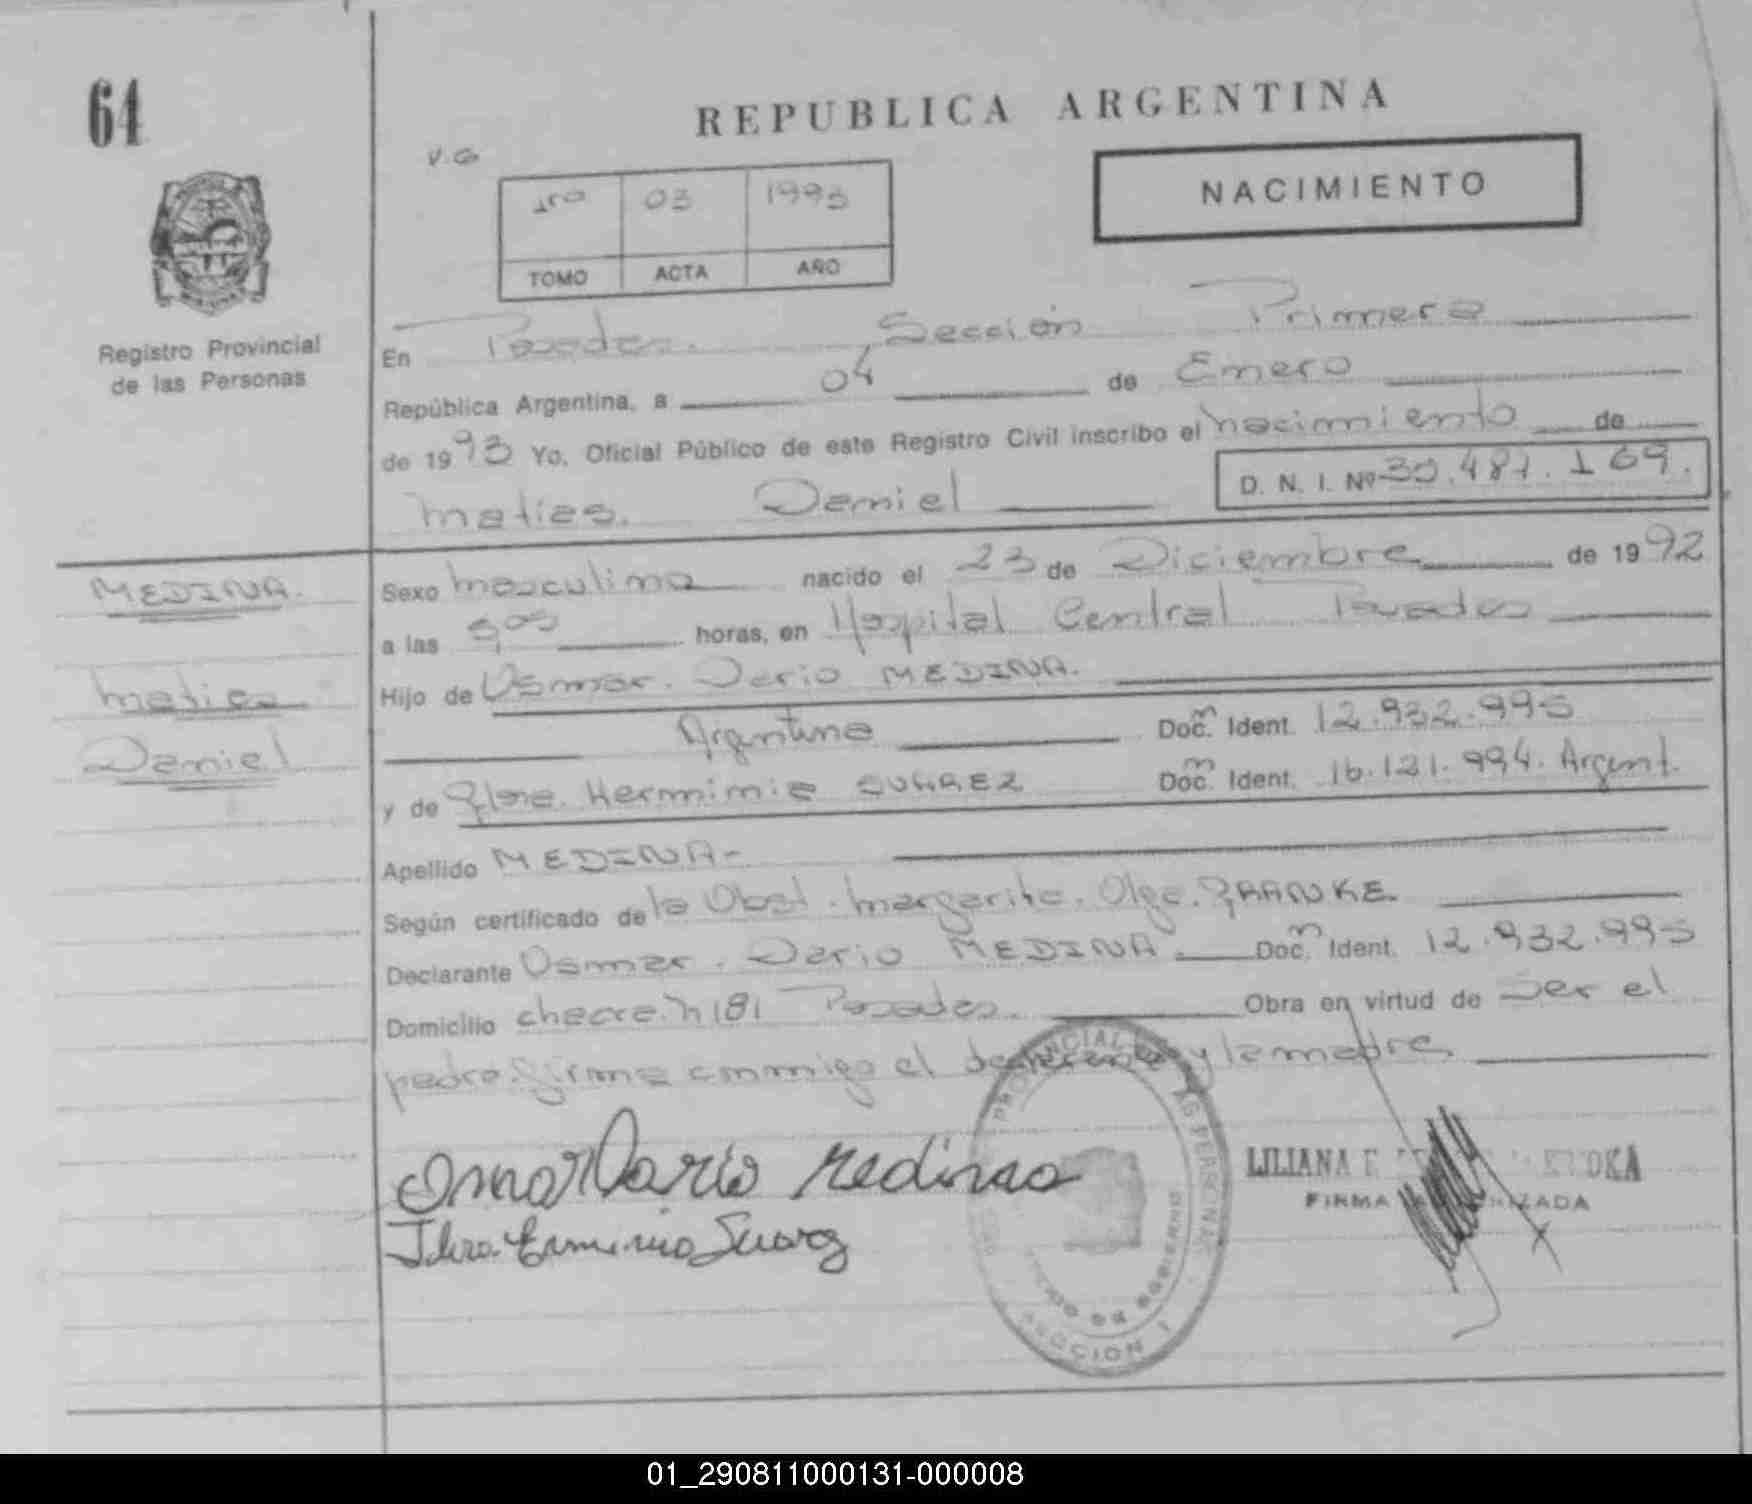 64
REPUBLICA ARGENTINA
V.G
1ro 03 1993
TOMO ACTA AÑO
NACIMIENTO
Registro Provincial
de las Personas
En Posadas. Sección Primera
República Argentina, a 04 de Enero
de 1993 Yo, Oficial Público de este Registro Civil inscribo el nacimiento de
D. N. I. Nº
matias. Daniel
MEDINA.
matias
Daniel
Sexo masculino nacido el 23 de Diciembre de 1992
a las horas, en Hospital Central Posadas
Hijo de Osmar. Dario MEDINA.
Argentino Docm. Ident. 12.932.995
y de Herminia SUAREZ Docm. Ident. 16.121.994. Argent.
Apellido MEDINA-
Según certificado de la Obst. Margarita. Olga.
Declarante Osmar. Dario MEDINA Docm. Ident. 12.932.995
Domicilio chacra. n 181 Posadas. Obra en virtud de ser el
padre. firma conmigo el declarante y la madre
Omar Dario Medina
Suarez
LILIANA
FIRMA AUTORIZADA
PROVINCIAL DE LAS PERSONAS
01_290811000131-000008